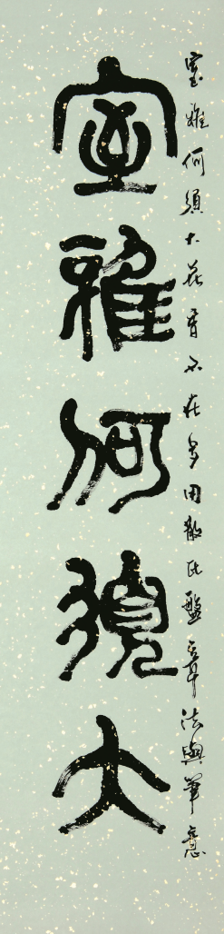 室雅何須大花香不在多用散氏盤章法與筆意
室雅何須大